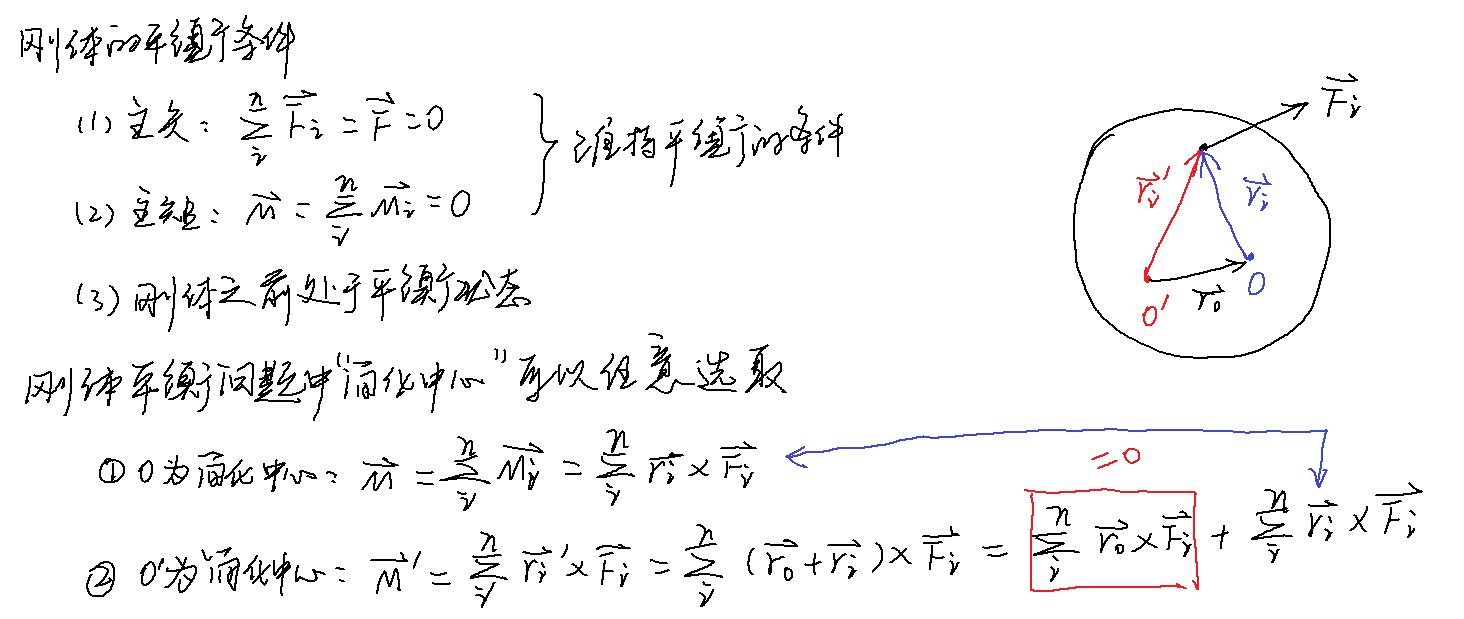 刚体的平衡条件
(1) 主矢: $\sum_i^n \vec{F_i} = \vec{F} = 0$
(2) 主矩: $\vec{M} = \sum_i^n \vec{M_i} = 0$
维持平衡的条件
(3) 刚体之前处于平衡状态
刚体平衡问题中“简化中心”可以任意选取
① O为简化中心: $\vec{M} = \sum_i^n \vec{M_i} = \sum_i^n \vec{r_i} \times \vec{F_i}$
=0
② O'为简化中心: $\vec{M}' = \sum_i^n \vec{r_i}' \times \vec{F_i} = \sum_i^n (\vec{r_0} + \vec{r_i}) \times \vec{F_i} = \sum_i^n \vec{r_0} \times \vec{F_i} + \sum_i^n \vec{r_i} \times \vec{F_i}$
$\vec{F_i}$
$\vec{r_i}'$
$\vec{r_i}$
O'
$\vec{r_0}$
O